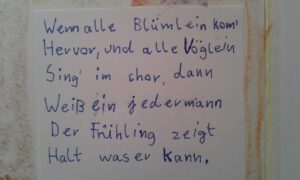 Wenn alle Blümlein kom'
Hervor, und alle Vöglein
Sing' im chor, dann
Weiß ein jedermann
Der Frühling zeigt
Halt waser kann.